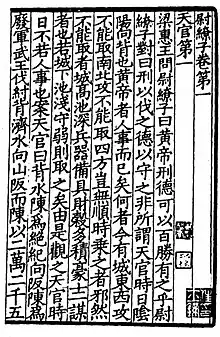 尉繚子卷第一
天官第一
梁惠王問尉繚子曰黃帝刑德可以百勝有之乎尉
繚子對曰刑以伐之德以守之非所謂天官時日陰
陽向背也黃帝者人事而已矣何者今有城東西攻
不能取南北攻不能取四方豈無順時乘之者邪然
不能取者城高池深兵器備具財穀多積豪士一謀
者也若城下池淺守弱則取之矣由是觀之天官時
日不若人事也案天官曰背水陳爲絕紀向阪陳爲
廢軍武王伐紂背濟水向山阪而陳以二萬二千五